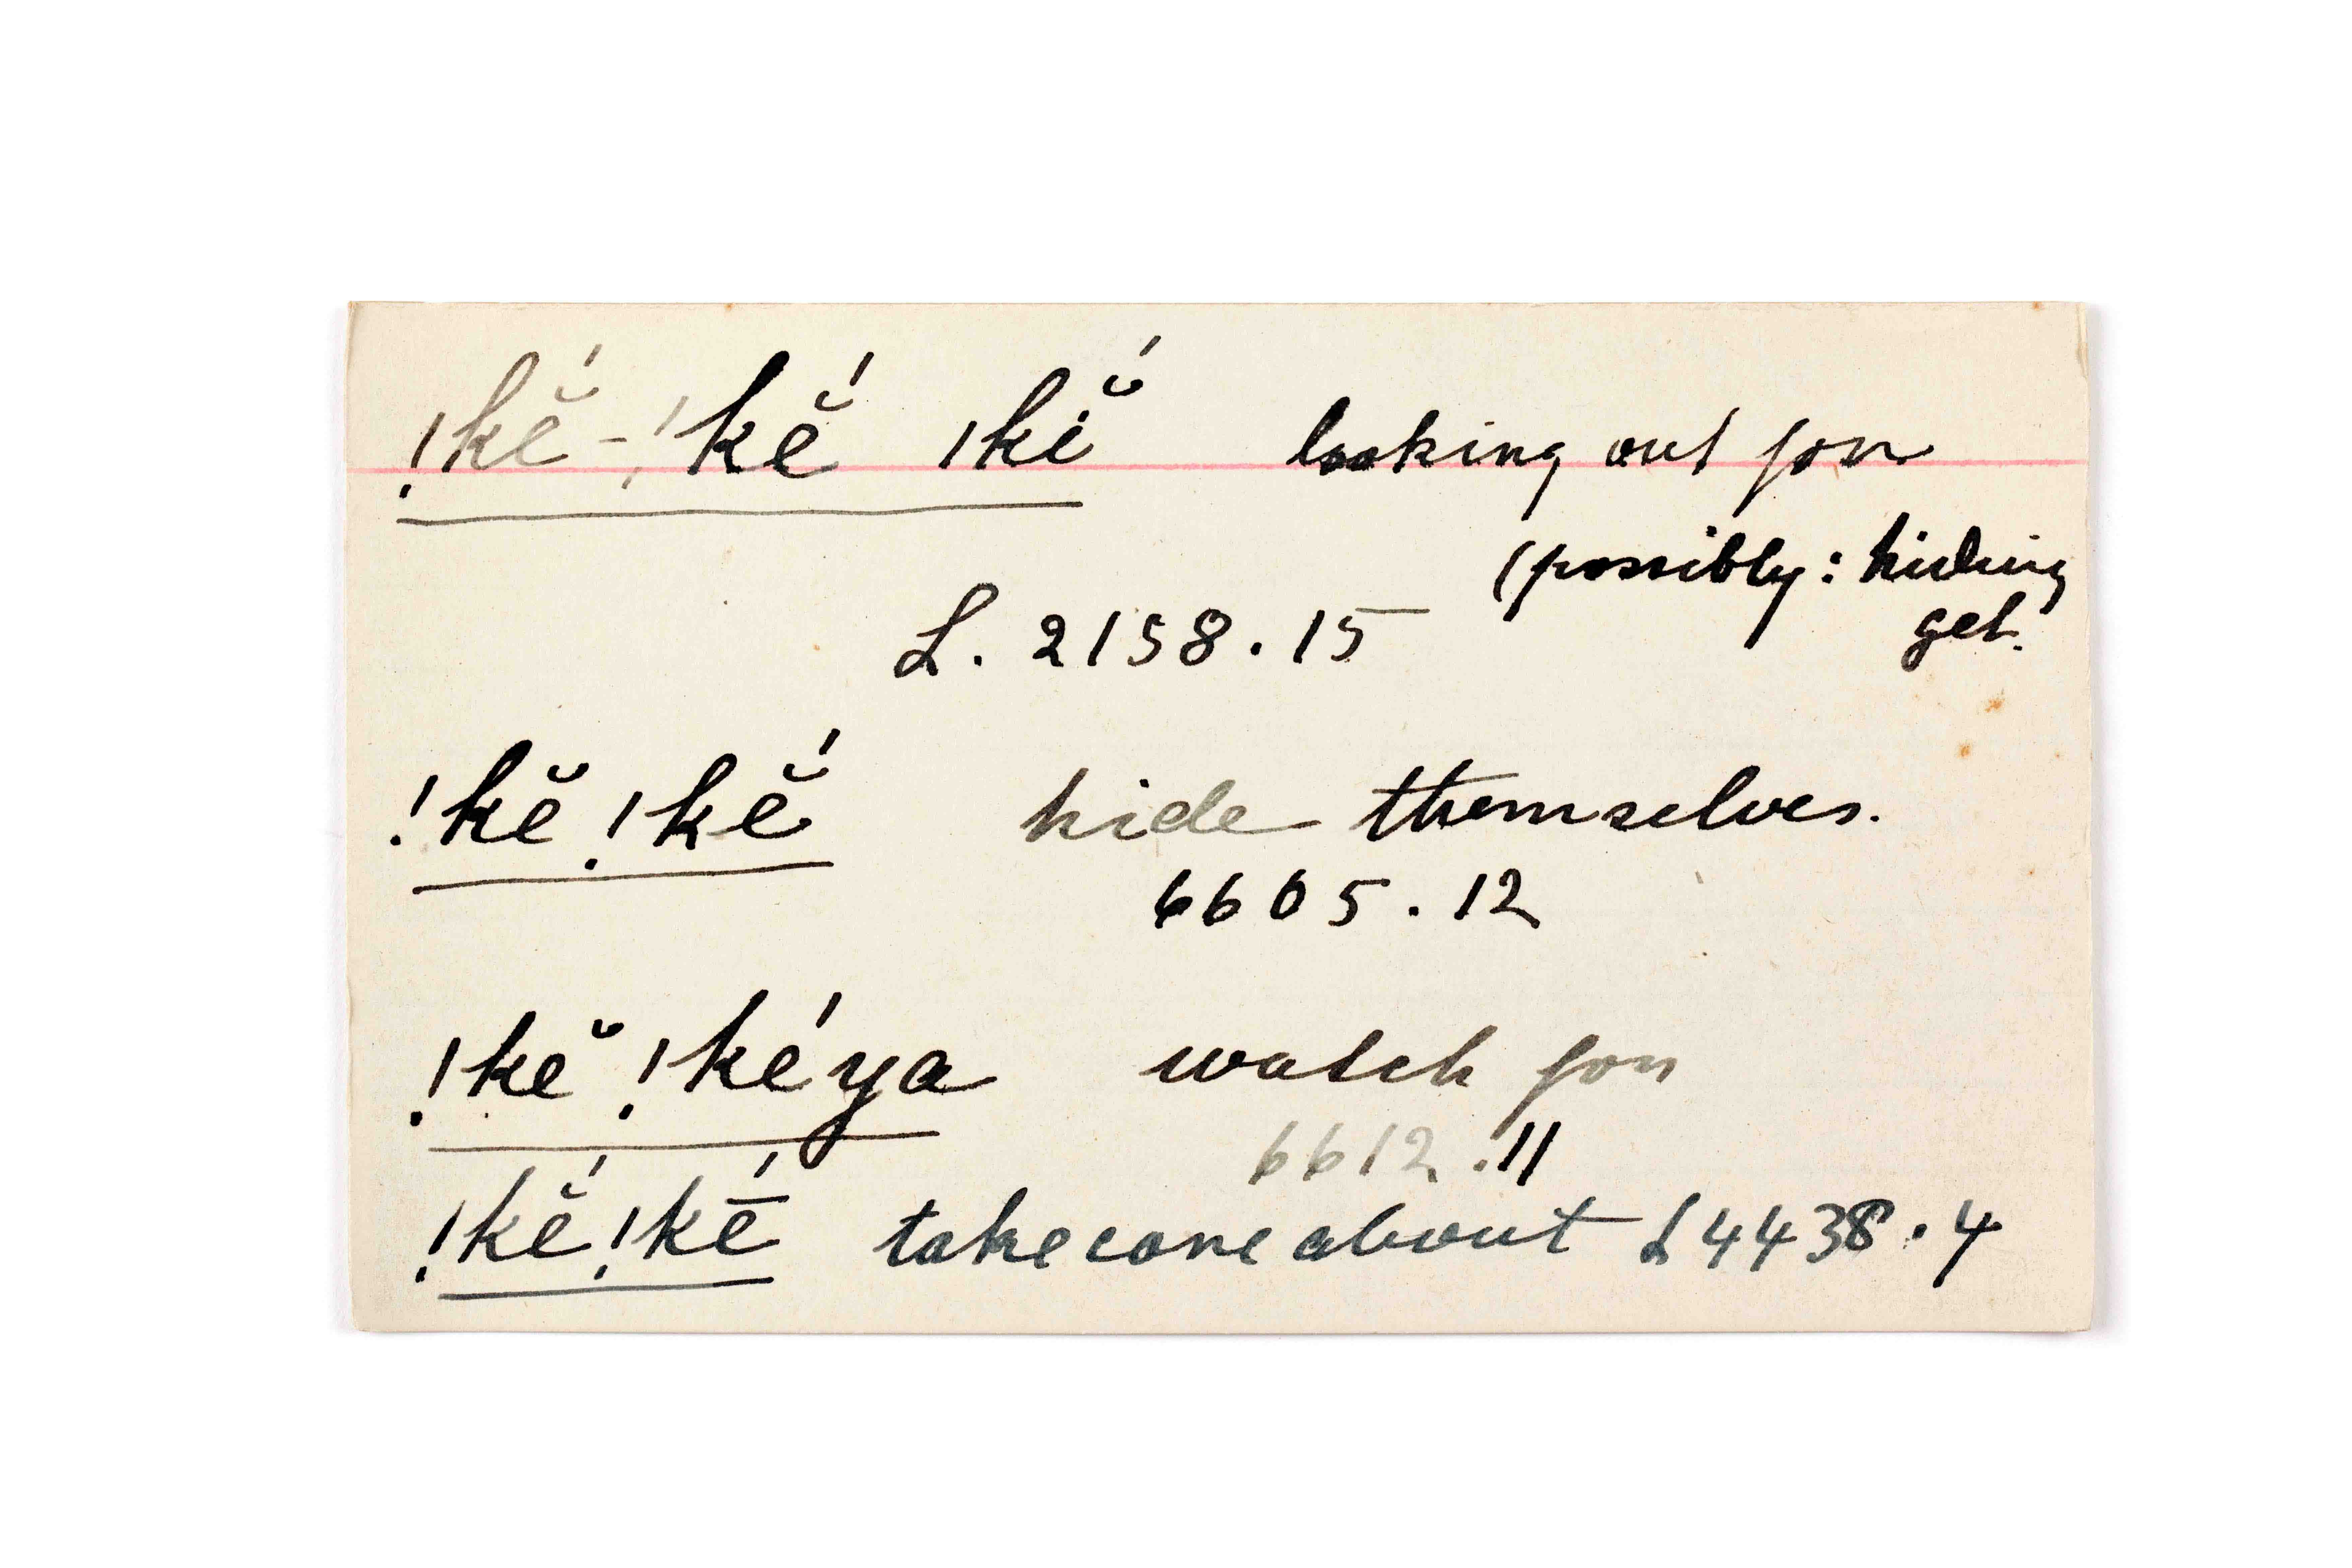 !kĕ́-!kĕ́ ǀkĭ́ looking out for
(possibly: hiding
get.
L. 2158.15
!kĕ !kĕ́ hide themselves.
6605.12
!kĕ !kéya watch for
6612.11
!kĕ́ !kḗ take care about L 4438.4